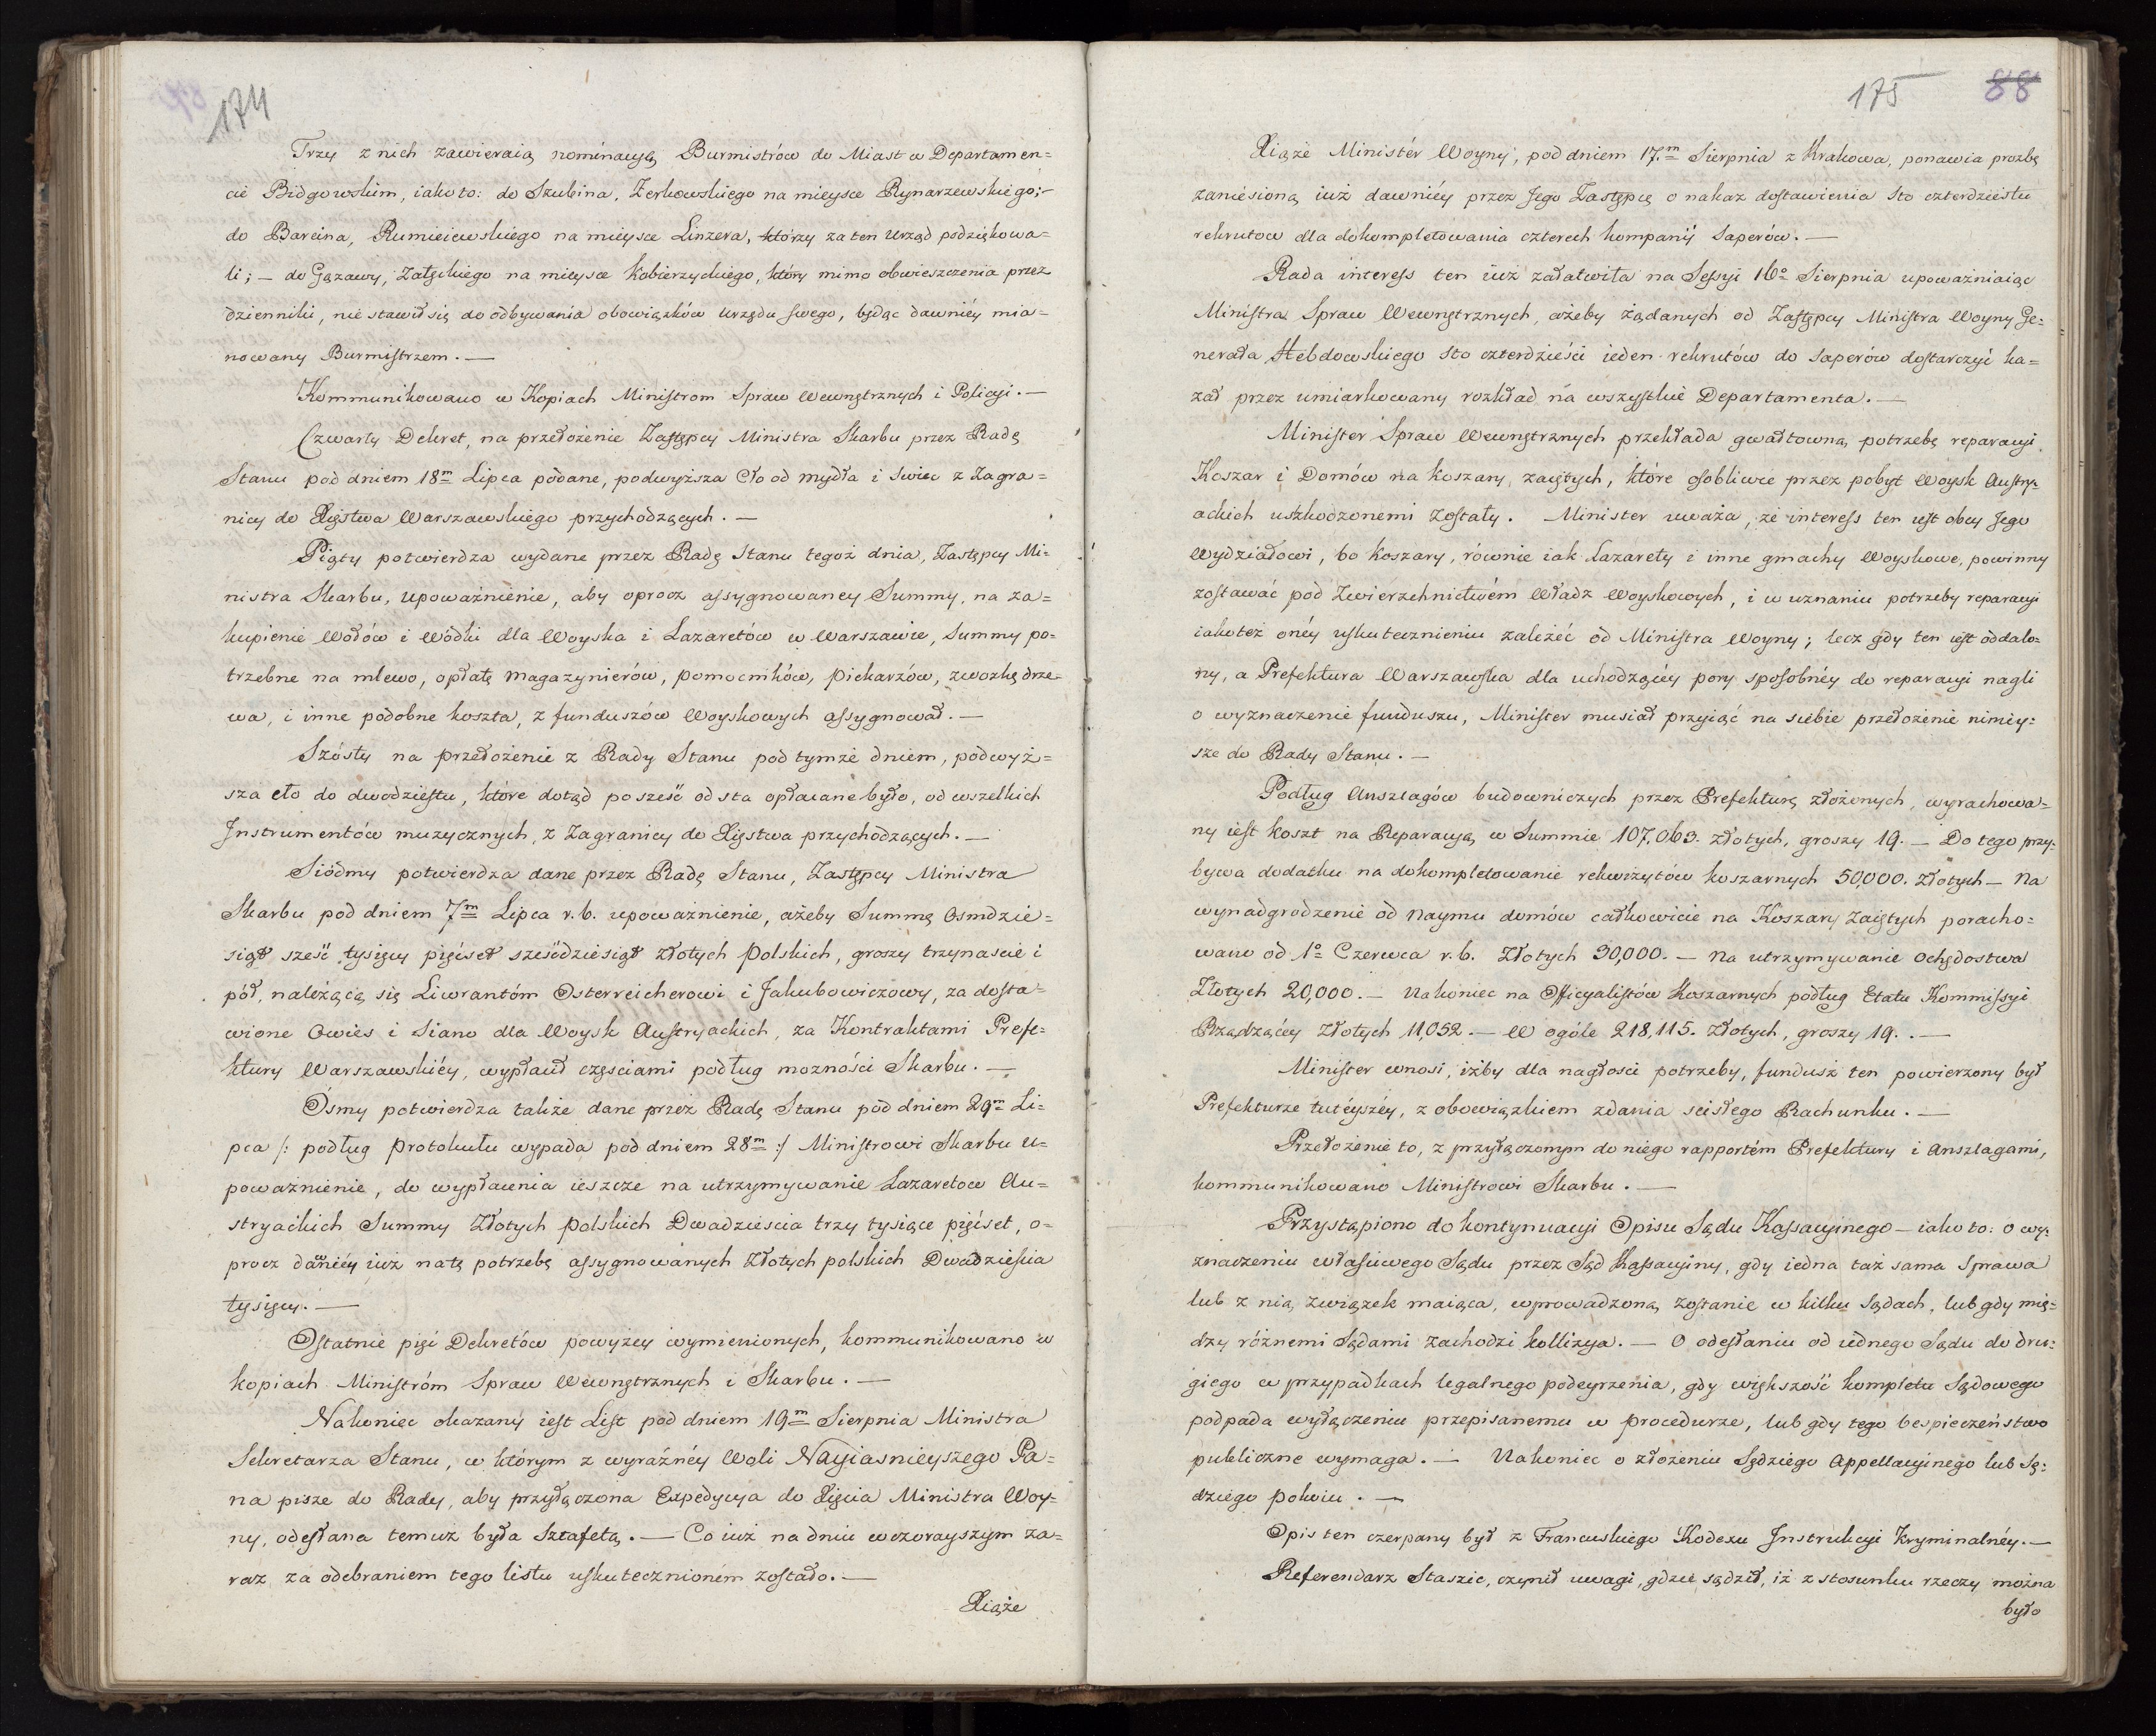 174
Trzy z nich zawieraią nominacyą Burmistrów do Miast w Departamen=
cie Bidgowskim, iako to: do Szubina, Zerkowskiego na mieysce Rynarzewskiego;-
do Barcina, Rumieiewskiego na mieysce Linzera, którzy za ten Urząd podziękowa=
li; — do Gązawy, Załęskiego na mieysce Kobierzyckiego, który mimo obwieszczenia przez
dzienniki, nie stawił się do odbywania obowiązków urzędu swego, będąc dawniéy mia=
nowany Burmistrzem. —
Kommunikowano w Kopiach Ministrom Spraw Wewnętrznych i Policyi. —
Czwarty Dekret, na przełożenie Zastępcy Ministra Skarbu przez Radę
Stanu pod dniem 18m Lipca podane, podwyższa Cło od mydła i Swiec z Zagra=
nicy do Xięstwa Warszawskiego przychodzących. —
Piąty potwierdza wydane przez Radę Stanu tegoż dnia, Zastępcy Mi=
nistra Skarbu, upoważnienie, aby oprocz assygnowaney Summy, na za=
kupienie Wołów i Wódki dla Woyska i Lazaretów w Warszawie, Summy po=
trzebne na mlewo, opłatę Magazynierów, pomocników, piekarzów, zwozkę drze=
wa, i inne podobne koszta, z funduszów Woyskowych assygnował. —
Szósty na przełożenie z Rady Stanu pod tymże dniem, podwyż=
sza cło do dwudziestu, które dotąd po sześć od sta opłacane było, od wszelkich
Instrumentów muzycznych, z Zagranicy do Xięstwa przychodzących. —
Siódmy potwierdza dane przez Radę Stanu, Zastępcy Ministra
Skarbu pod dniem 7m Lipca r. b. upoważnienie, ażeby Summę Osmdzie=
siąt sześć tysięcy pięćset sześćdziesiąt złotych polskich, groszy trzynascie i
pół, należącą się Liwrantóm Osterreicherowi i Jakubowiczowy, za dosta=
wione Owies i Siano dla Woysk Austryackich, za Kontraktami Prefe=
ktury Warszawskiéy, wypłacił częsciami podług mozności Skarbu. —
Ósmy potwierdza także dane przez Radę Stanu pod dniem 29m Li=
pca /: podług Protokułu wypada pod dniem 28m :/ Ministrowi Skarbu u=
poważnienie, do wypłacenia ieszcze na utrzymywanie Lazaretow Au=
stryackich Summy złotych polskich Dwadzieścia trzy tysiące pięćset, o=
procz dawniéy iuż na tę potrzebę assygnowanych złotych polskich Dwadzieścia
tysięcy. —
Ostatnie pięć Dekretów powyżey wymienionych, kommunikowano w
kopiach Ministróm Spraw Wewnętrznych i Skarbu. —
Nakoniec okazany iest List pod dniem 19m Sierpnia Ministra
Sekretarza Stanu, w którym z wyraźnéy Woli Nayiasnieyszego Pa=
na pisze do Rady, aby przyłączona Expedycya do Xięcia Ministra Woy=
ny, odesłana temuż była Sztafetą. — Co iuż na dniu wczorayszym za=
raz za odebraniem tego listu uskutecznioném zostało. —
Xiąże
175 88
Xiąże Minister Woyny, pod dniem 17m Sierpnia z Krakowa, ponawia prozbę
zaniesioną iuż dawniéy przez Jego Zastępcę o nakaz dostawienia Sto czterdziestu
rekrutow dla dokompletowania czterech kompanij Saperów. —
Rada interess ten iuż załatwiła na Sessyi 16o Sierpnia upoważniaiąc
Ministra Spraw Wewnętrznych, ażeby żądanych od Zastępcy Ministra Woyny Ge=
nerała Hebdowskiego Sto czterdzieści ieden rekrutów do Saperów dostarczyć ka=
zał przez umiarkowany rozkład na wszystkie Departamenta. —
Minister Spraw Wewnętrznych przekłada gwałtowną potrzebę reparacyi
Koszar i Domów na koszary zaiętych, które osobliwie przez pobyt Woysk Austry=
ackich uszkodzonemi zostały. Minister uważa, że interess ten iest obcy Jego
Wydziałowi, bo koszary, równie iak Lazarety i inne gmachy Woyskowe, powinny
zostawać pod Zwierzchnictwém Władz Woyskowych, i w uznaniu potrzeby reparacyi
iakoteż onéy uskutecznieniu zależéć od Ministra Woyny; lecz gdy ten iest oddalo=
ny, a Prefektura Warszawska dla uchodzącéy pory sposobnéy do reparacyi nagli
o wyznaczenie funduszu, Minister musiał przyiąć na siebie przełożenie ninięy=
sze do Rady Stanu. —
Podług Anszlagów budowniczych przez Prefekturę złożonych, wyrachowa=
ny iest koszt na Reparacyą w Summie 107,063. złotych, groszy 19. — Do tego przy=
bywa dodatku na dokompletowanie rekwizytów koszarnych 50,000. złotych — Na
wynadgrodzenie od naymu domów całkowicie na Koszary zaiętych poracho=
wano od 1o Czerwca r. b. Złotych 30,000. — Na utrzymywanie ochędostwa
Złotych 20,000. — Nakoniec na Officyalistów Koszarnych podług Etatu Kommissyi
Rządzącéy złotych 11,052. — W ogóle 218,115. złotych, groszy 19. . —
Minister wnosi, iżby dla nagłości potrzeby, fundusz ten powierzony był
Prefekturze tutéyszéy, z obowiązkiem zdania scisłego Rachunku. —
Przełożenie to, z przyłączonym do niego rapportém Prefektury i Anszlagami,
kommunikowano Ministrowi Skarbu. —
Przystąpiono do kontynuacyi Opisu Sądu Kassacyinego — iako to: o wy=
znaczeniu własciwego Sądu przez Sąd Kassacyiny, gdy iedna taż sama Sprawa
lub z nią związek maiąca, wprowadzoną zostanie w kilku Sądach, lub gdy mię=
dzy różnemi Sądami zachodzi kollizya. — O odesłaniu od iednego Sądu do dru=
giego w przypadkach legalnego podeyrzenia, gdy większość kompletu Sądowego
podpada wyłączeniu przepisanemu w procedurze, lub gdy tego bespieczeństwo
publiczne wymaga. — Nakoniec o złożeniu Sędziego Appellacyinego lub Sę=
dziego pokoiu. —
Opis ten czerpany był z Francuskiego Kodexu Instrukcyi Kryminalnéy. —
Referendarz Staszic, czynił uwagi, gdzie sądził, iż z stosunku rzeczy można
było